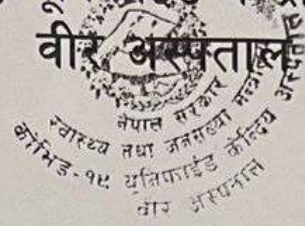 वीर अस्पताल
नेपाल सरकार
स्वास्थ्य तथा जनसंख्या मन्त्रालय
कोभिड-१९ युनिफाईड केन्द्रिय अस्पताल
वीर अस्पताल